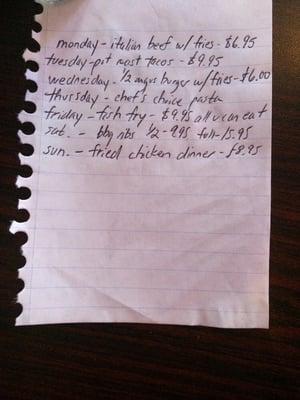 monday - italian beef w/ fries - $6.95
tuesday - pot roast tacos - $9.95
wednesday - 1/2 angus burger w/ fries - $6.00
thursday - chef's choice pasta
friday - fish fry - $9.95 all u can eat
sat. - bbq ribs 1/2 - 9.95 full - 15.95
sun. - fried chicken dinner - $8.95